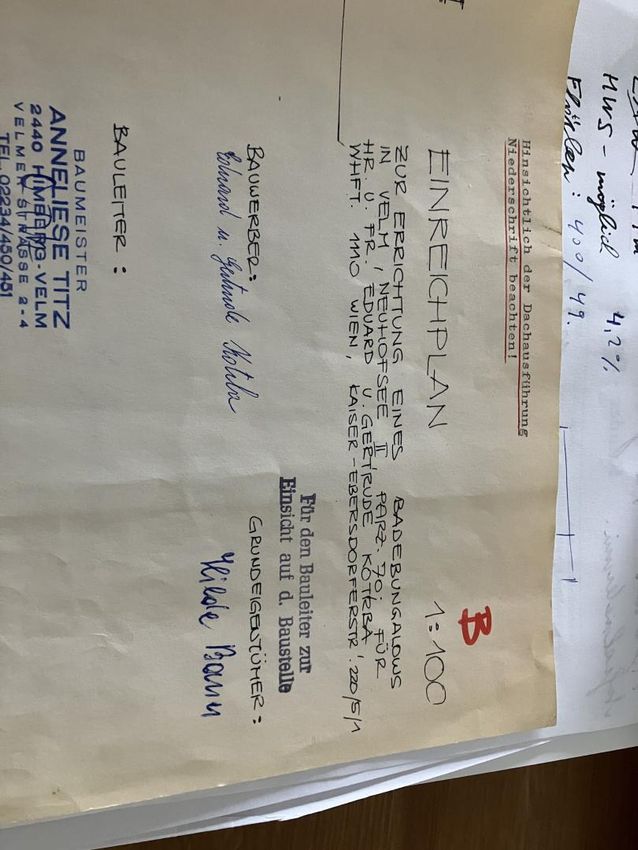 HWS - möglich 4,2%
Flächen: 400/49.
Hinsichtlich der Dachausführung
Niederschrift beachten!
B
EINREICHPLAN 1:100
ZUR ERRICHTUNG EINES BADEBUNGALOWS
IN VELM, NEUHOFSEE II PARZ. 70, FÜR
HR. U. FR. EDUARD U. GERTRUDE KOTRBA
WHFT. 1110 WIEN, KAISER-EBERSDORFERSTR. 220/5/1
Für den Bauleiter zur
Einsicht auf d. Baustelle
BAUWERBER:
Eduard u. Gertrude Kotrba
GRUNDEIGENTÜMER:
Hilde
BAULEITER:
BAUMEISTER
ANNELIESE TITZ
2440 HIMBERG-VELM
VELMER STRASSE 2-4
TEL. 02234/450/451